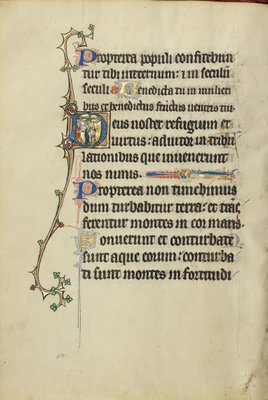 Propterea populi confitebun
tur tibi in eternum: ⁊ in seculū
seculi a Benedicta tu in mulieri
bus et benedictus fructus ventris tui
Deus noster refugium et
virtus: adiutor in tribu
lationibus que invenerunt
nos nimis.
Propterea non timebimus
dum turbabitur terra: et trās
ferentur montes in cor maris
Sonuerunt et conturbate
sunt aque eorum: conturba
ti sunt montes in fortitudi